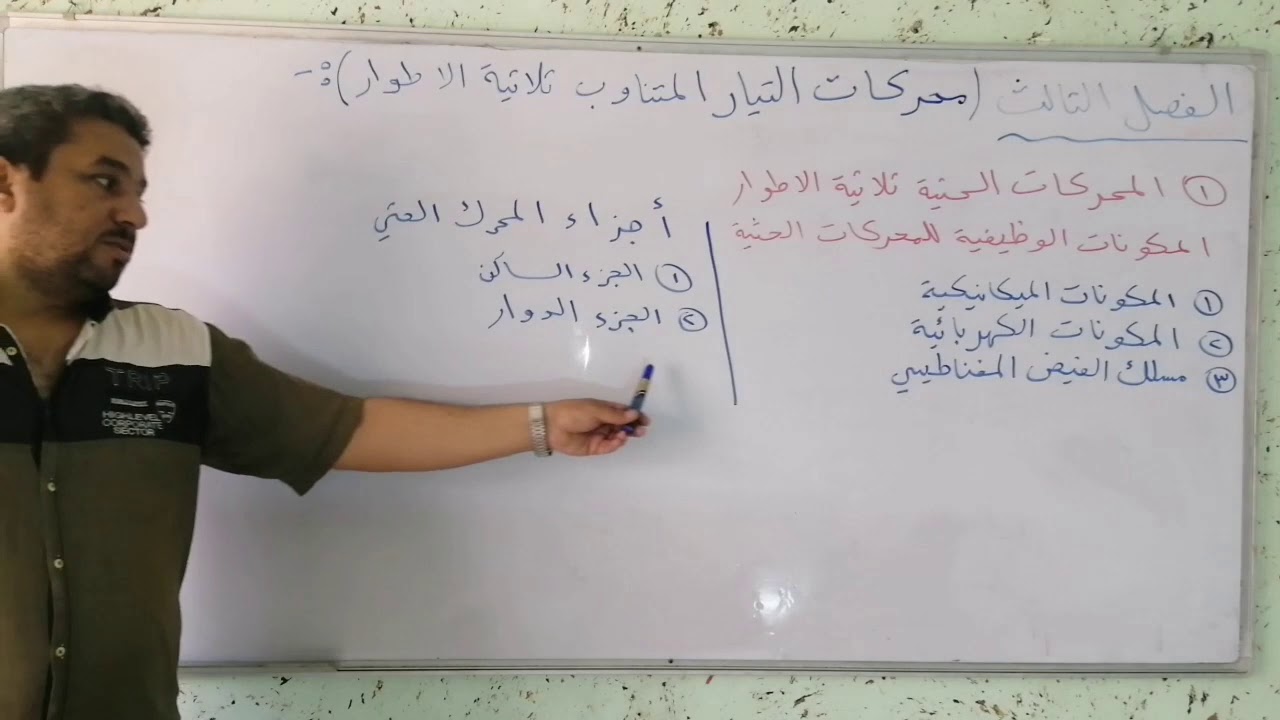 الفصل الثالث (محركات التيار المتناوب ثلاثية الاطوار):-
① المحركات الحثية ثلاثية الاطوار
المكونات الوظيفية للمحركات الحثية
① المكونات الميكانيكية
② المكونات الكهربائية
③ مسلك الفيض المغناطيسي
أجزاء المحرك الحثي
① الجزء الساكن
② الجزء الدوار
TRIP
HIGH LEVEL
CORPORATE
SECTOR